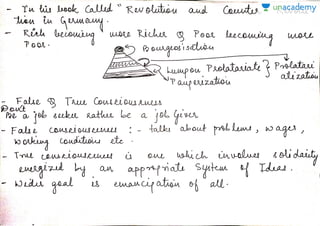 - In his book Called "Revolution and Counter unacademy
tion in Germany.
- Rich becoming more Richer & Poor becoming more
Poor.
Bourgeoisation
Lumpen Proletariate } Proletari
Pauperization alization
- False & True Consciousness
Don't
Be a job seeker rather be a job Giver
- False consciousness :- talks about problems, wages,
working conditions etc.
- True consciousness is one which involves solidarity
energized by an appropriate System of Ideas.
- Wider goal is emancipation of all.